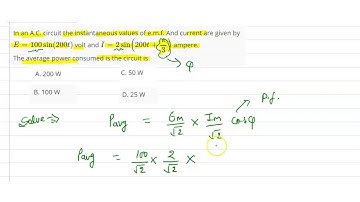 In an A.C. circuit the instantaneous values of e.m.f. And current are given by
E = 100 sin(200t) volt and I = 2 sin(200t + π/3) ampere.
The average power consumed is the circuit is
φ
A. 200 W
C. 50 W
B. 100 W
D. 25 W
p.f.
Solve ⇒ Pavg = Em/√2 × Im/√2 cosφ
Pavg = 100/√2 × 2/√2 ×